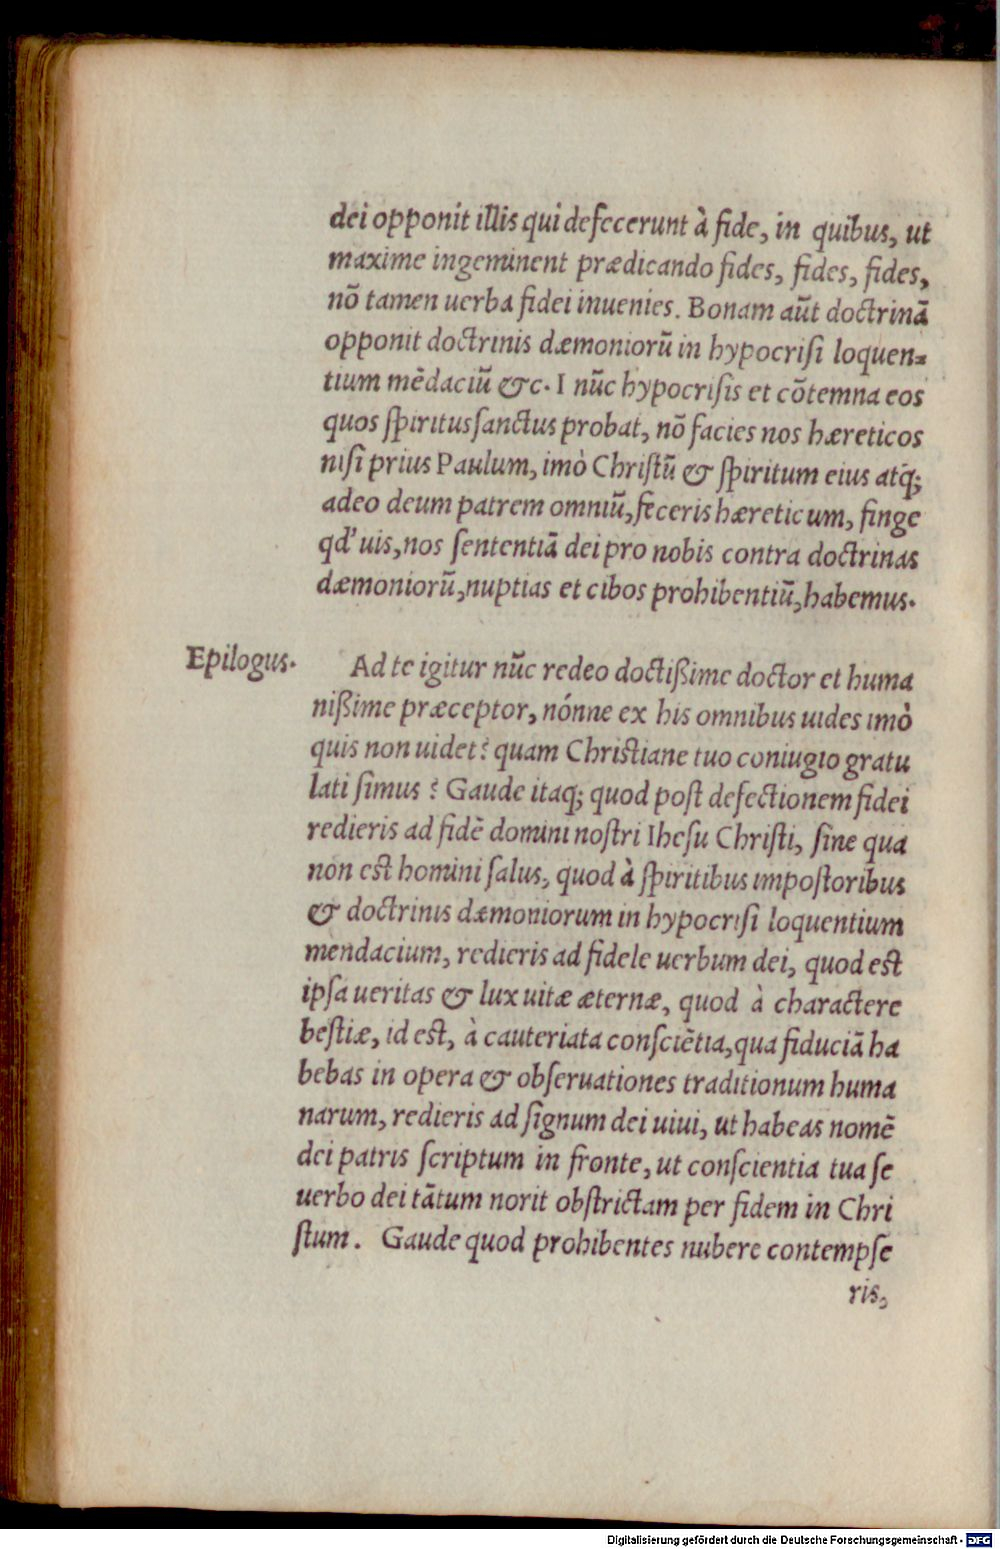 dei opponit illis qui defecerunt à fide, in quibus, ut
maxime ingeminent prædicando fides, fides, fides,
nõ tamen uerba fidei inuenies. Bonam aũt doctrinã
opponit doctrinis dæmoniorũ in hypocrisi loquen=
tium mẽdaciũ &c. I nũc hypocrisis et cõtemna eos
quos spiritussanctus probat, nõ facies nos hæreticos
nisi prius Paulum, imò Christũ & spiritum eius atq;
adeo deum patrem omniũ, feceris hæreticum, finge
qd' uis, nos sententiã dei pro nobis contra doctrinas
dæmoniorũ, nuptias et cibos prohibentiũ, habemus.
Epilogus.
Ad te igitur nũc redeo doctißime doctor et huma
nißime præceptor, nónne ex his omnibus uides imò
quis non uidet? quam Christiane tuo coniugio gratu
lati simus? Gaude itaq; quod post defectionem fidei
redieris ad fidẽ domini nostri Ihesu Christi, sine qua
non est homini salus, quod à spiritibus impostoribus
& doctrinis dæmoniorum in hypocrisi loquentium
mendacium, redieris ad fidele uerbum dei, quod est
ipsa ueritas & lux uitæ æternæ, quod à charactere
bestiæ, id est, à cauteriata consciẽtia, qua fiduciã ha
bebas in opera & obseruationes traditionum huma
narum, redieris ad signum dei uiui, ut habeas nomẽ
dei patris scriptum in fronte, ut conscientia tua se
uerbo dei tãtum norit obstrictam per fidem in Chri
stum. Gaude quod prohibentes nubere contempse
ris,
Digitalisierung gefördert durch die Deutsche Forschungsgemeinschaft - DFG